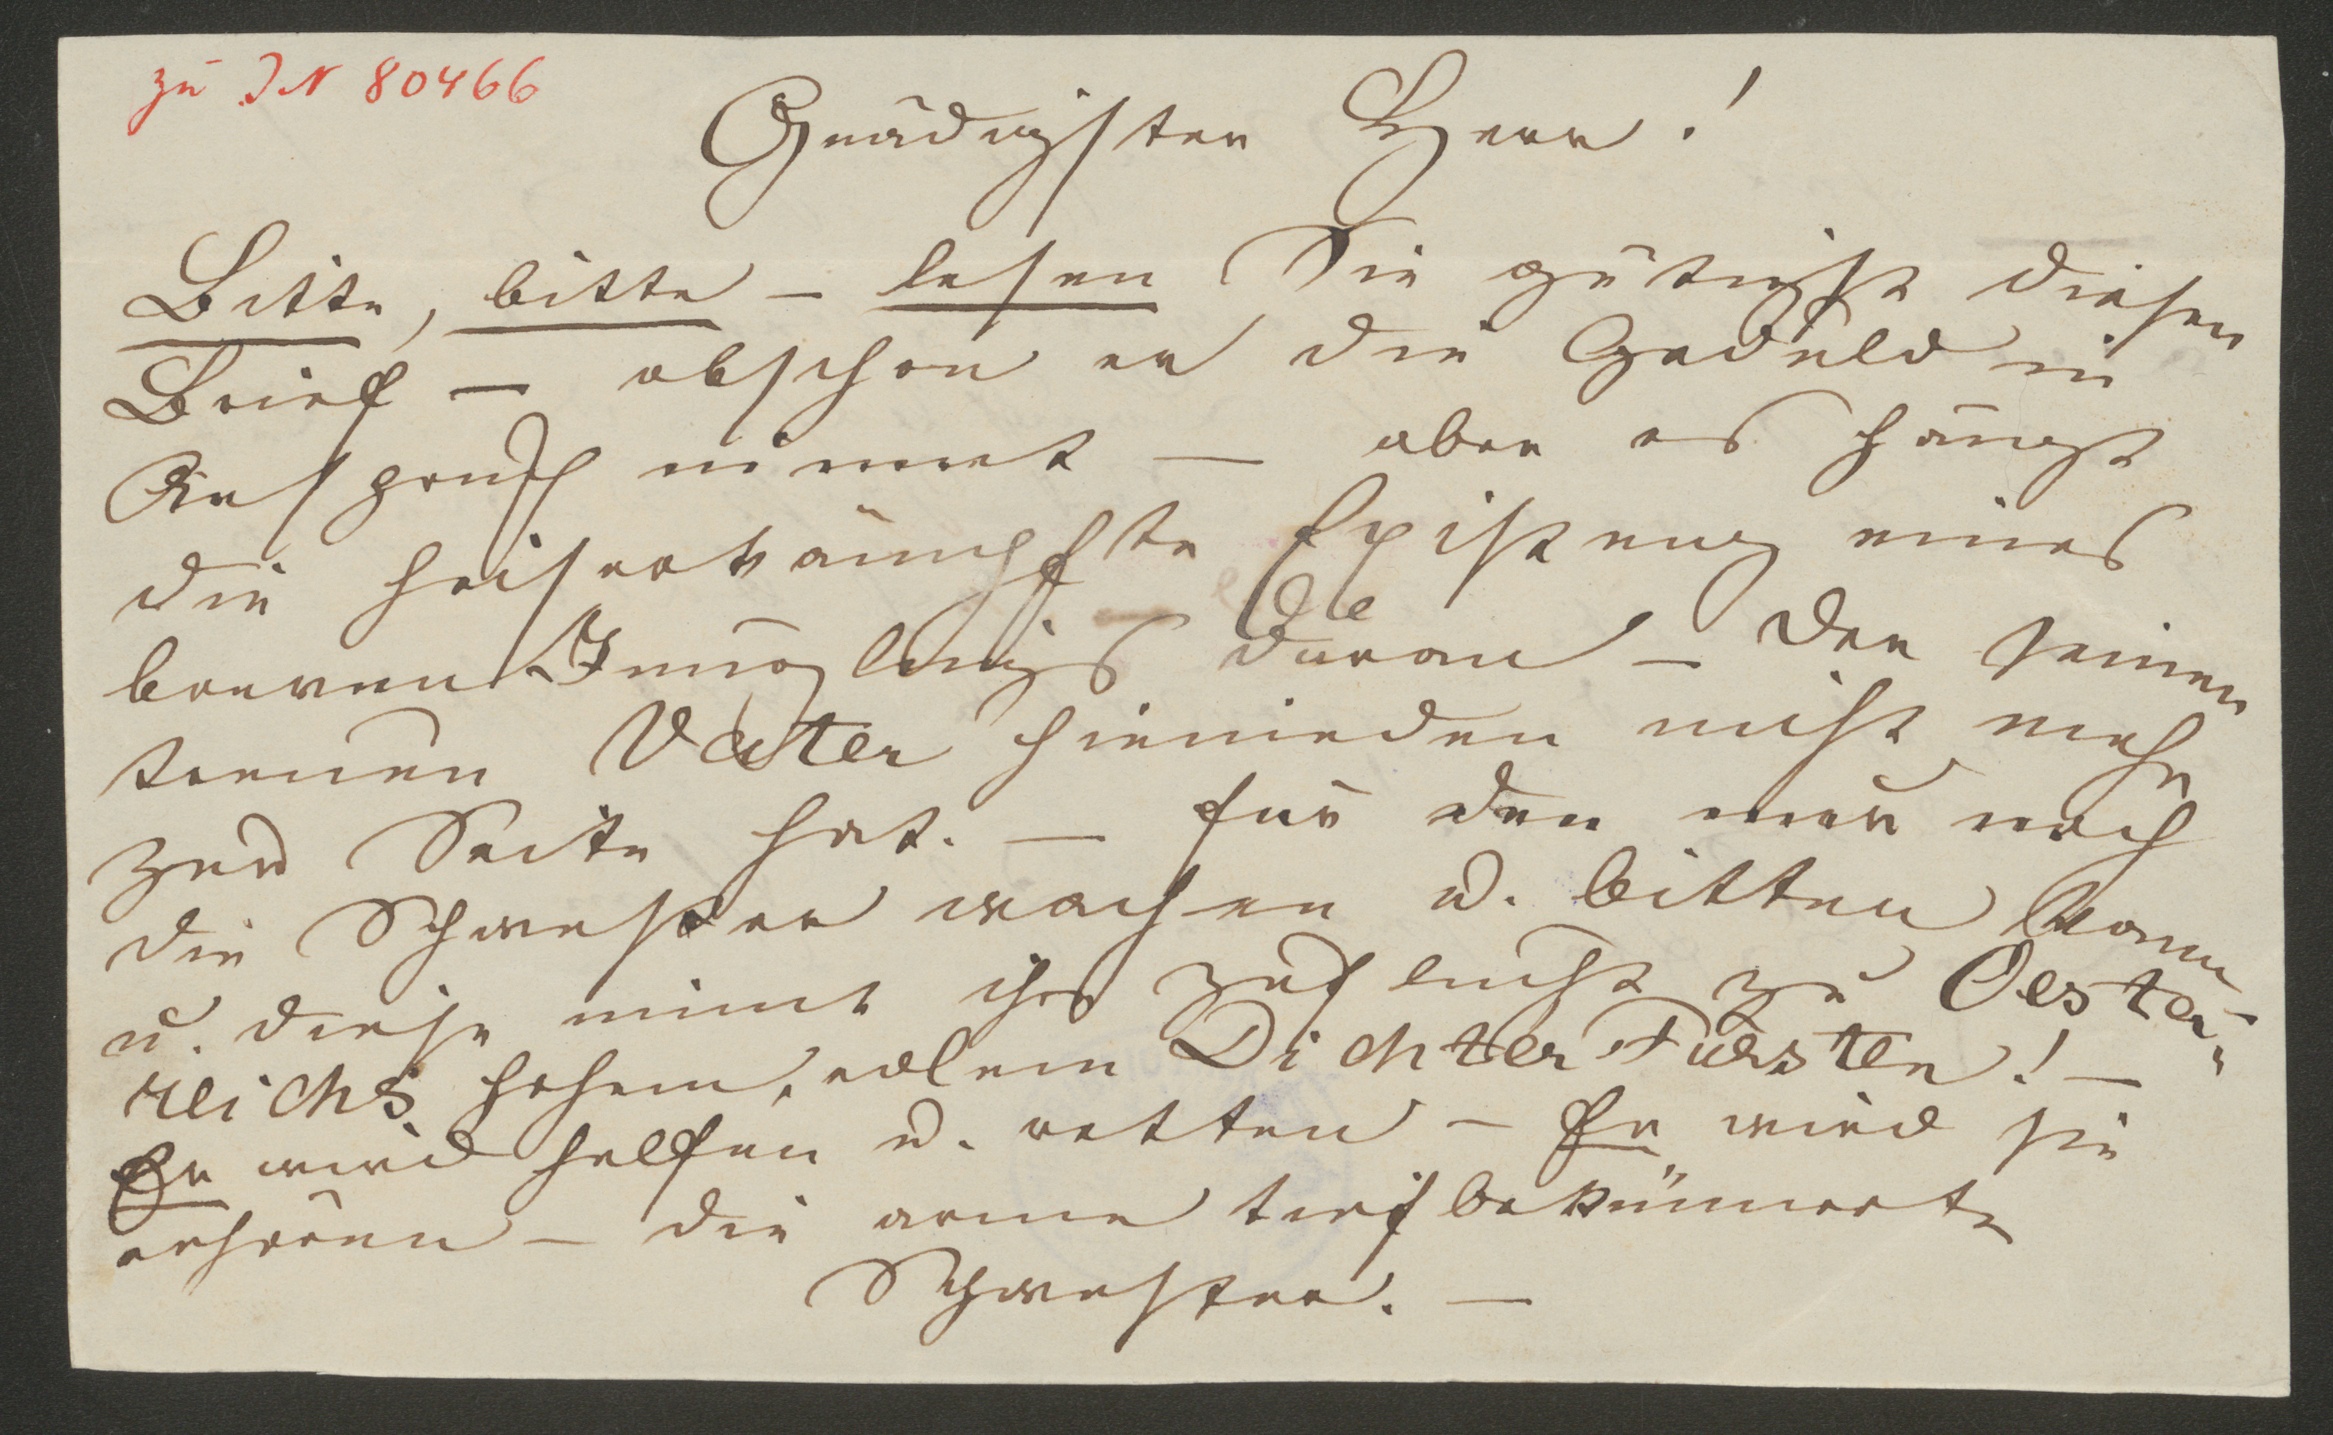 zu IN 80466
Gnädigster Herr!
Bitte, bitte – lesen Sie gütigst diesen
Brief – obschon er die Geduld in
Anspruch nimmt – aber es hängt
die heiserkämpfte Existenz eines
braven Jünglings daran – der seinen
treuen Vater hienieden nicht mehr
zur Seite hat. – für den nur noch
die Schwester wachen u. bitten kann –
u. diese nimt ihre Zuflucht zu Oester„
reichs hohem, edlem Dichter Fürsten! –
Er wird helfen u. retten – Er wird sie
erhören – die arme tief bekümmerte
Schwester. –